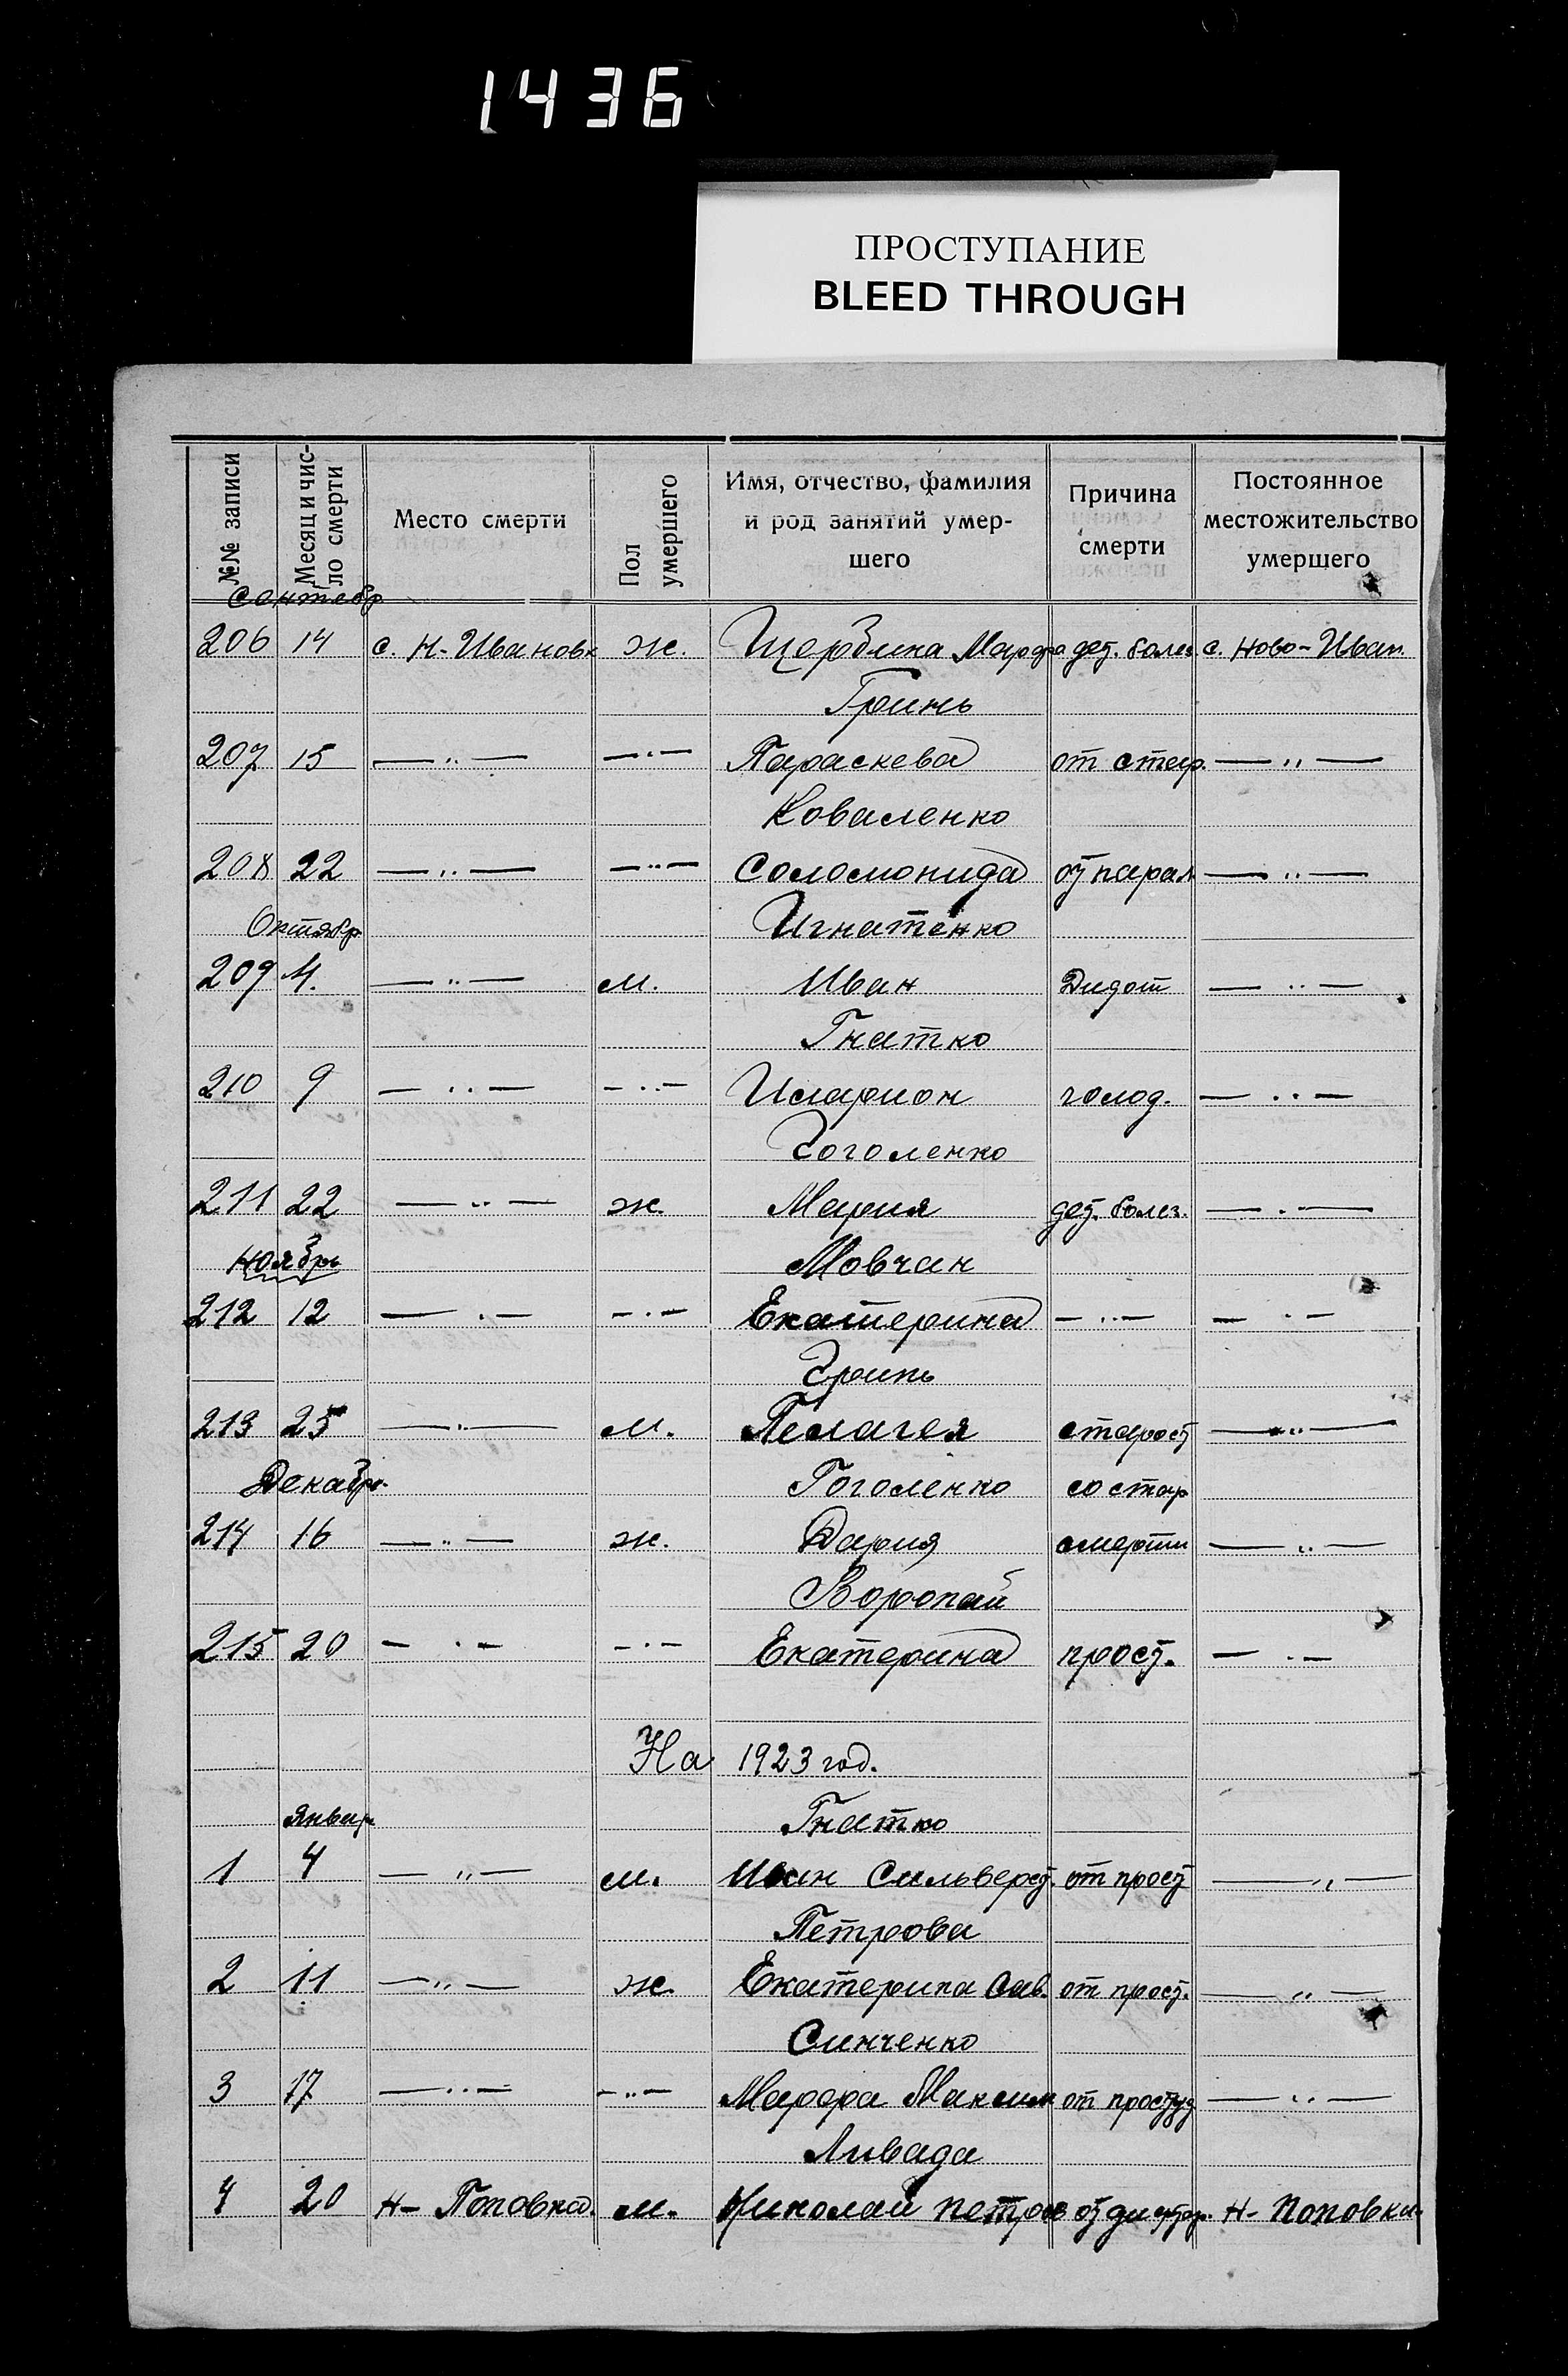 1436
ПРОСТУПАНИЕ
BLEED THROUGH
№№ записи
Месяц и число смерти
Место смерти
Пол умершего
Имя, отчество, фамилия
и род занятий умер-
шего
Причина
смерти
Постоянное
местожительство
умершего
Сентябр
206 14 с. Н-Ивановк ж. Щербина Марфа дет. болез. с. Ново-Иван.
Гринь
207 15 — „ — — „ — Параскева от стар. — „ —
Коваленко
208 22 — „ — — „ — Соломонида от парал — „ —
Октябр Игнатенко
209 4. — „ — м. Иван — „ —
Гнатко
210 9 — „ — — „ — Иларион голод. — „ —
Гоголенко
211 22 — „ — ж. Мария дет. болез. — „ —
Ноябрь Мовчан
212 12 — „ — — „ — Екатерина — „ — — „ —
Гринь
213 25 — „ — м. Пелагея старост — „ —
Декабр. Гоголенко со стар
214 16 — „ — ж. Дария смерти — „ —
Воропай
215 20 — „ — — „ — Екатерина прост. — „ —
На 1923 год.
Январ Гнатко
1 4 — „ — м. Иван Сильверст. от прост — „ —
Петрова
2 11 — „ — ж. Екатерина Сав. от прост. — „ —
Синченко
3 17 — „ — — „ — Марфа Максим от простуд — „ —
Ливада
4 20 Н- Поповка. м. Николай Петров от Н- Поповка.